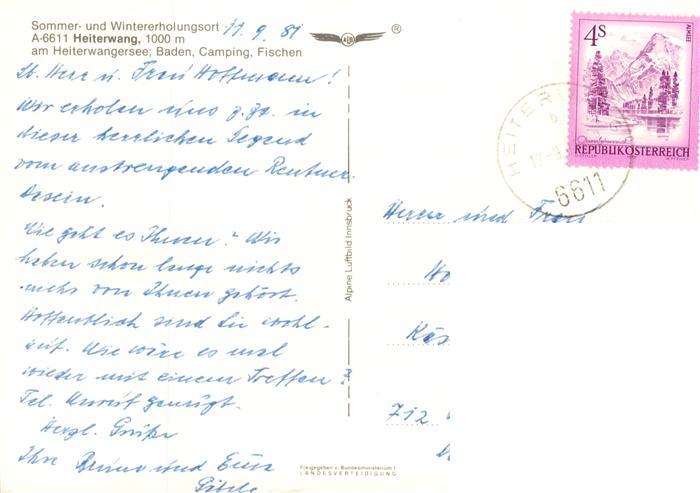 Sommer- und Wintererholungsort 11.9.81
A-6611 Heiterwang, 1000 m
am Heiterwangersee; Baden, Camping, Fischen
®
Lb. Herr u. Frau Hoffmann!
Wir erholen uns z.Zt. in
dieser herrlichen Gegend
vom anstrengenden Rentner-
Dasein.
Wie geht es Ihnen? Wir
haben schon lange nichts
mehr von Ihnen gehört.
Hoffentlich sind Sie wohl-
auf. Wie wäre es mal
wieder mit einem Treffen?
Tel. Anruf genügt.
Herzl. Grüße
Ihre Bruno und
Alpine Luftbild Innsbruck
Freigegeben v. Bundesministerium f.
LANDESVERTEIDIGUNG
4S
ALMSEE
REPUBLIK ÖSTERREICH
HEITER
6611
Herrn und Frau
Ho
Käs
712